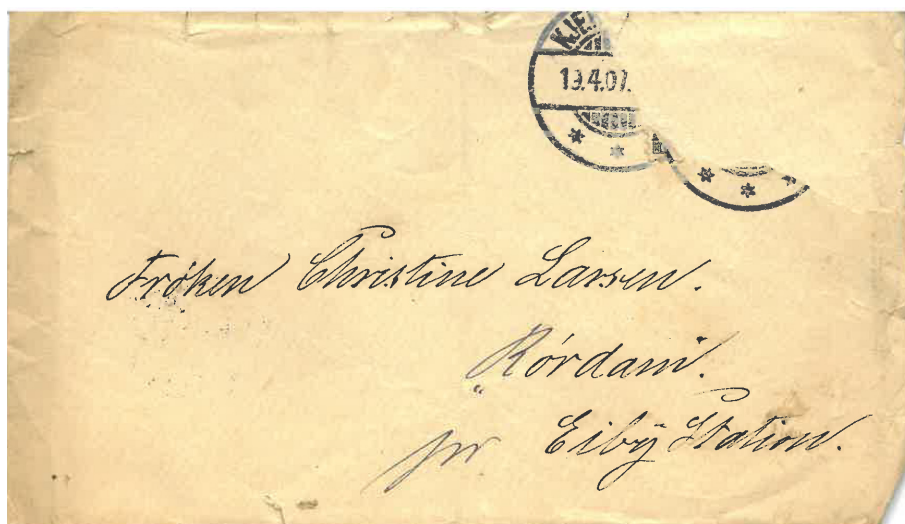 KJØ
13.4.07.
Frøken Christine Larsen.
„Rørdam.
pr Eiby Station.